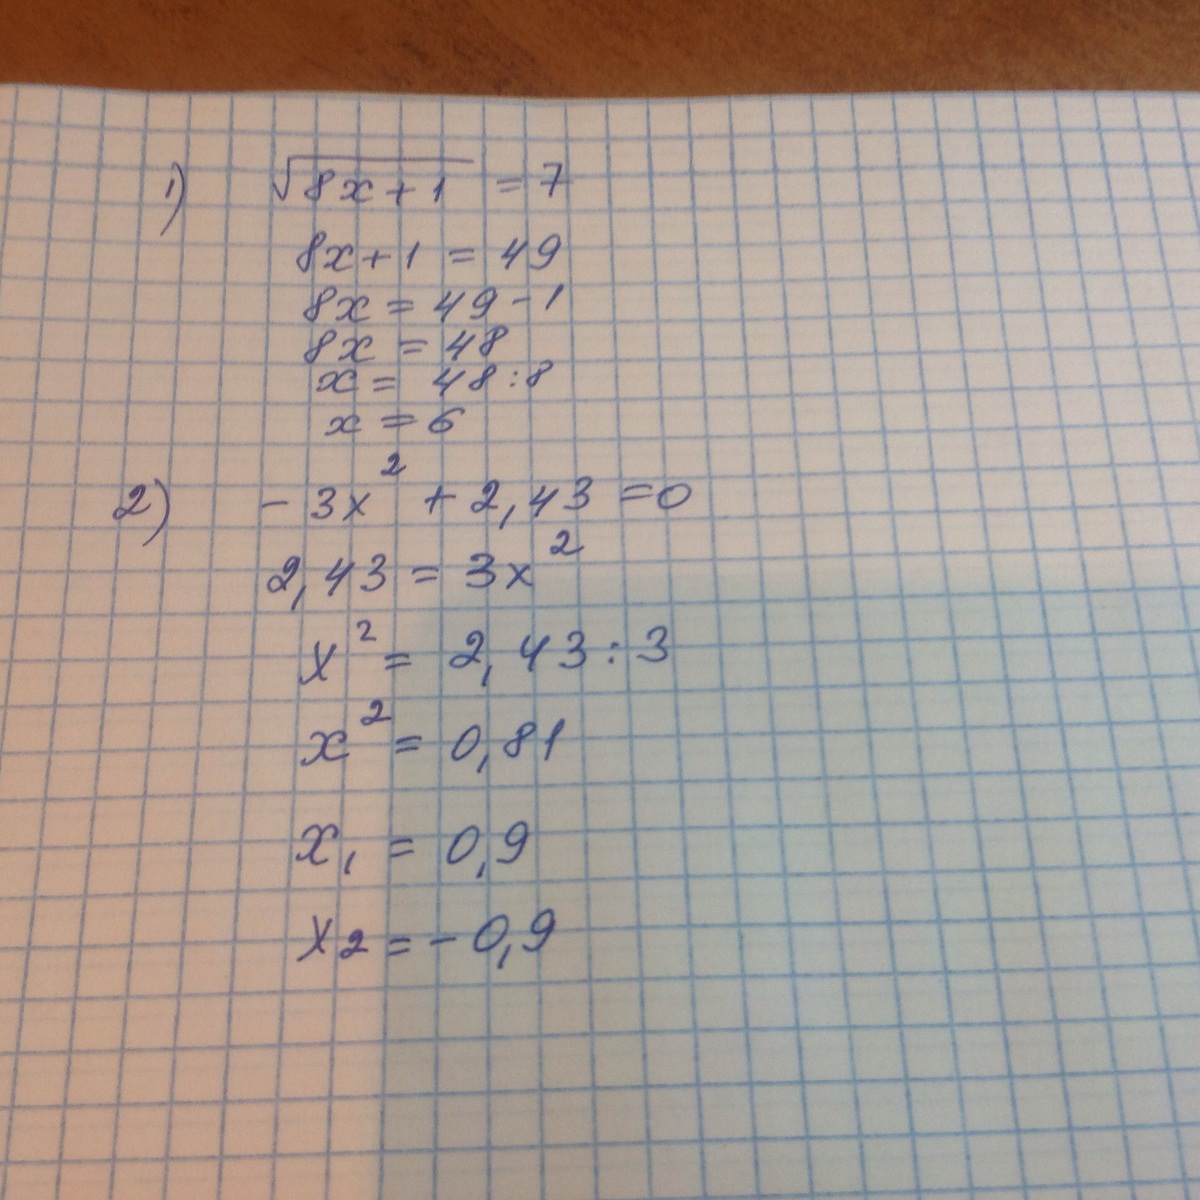 1) √8x+1 = 7
8x+1 = 49
8x = 49-1
8x = 48
x = 48:8
x = 6
2) -3x² + 2,43 = 0
2,43 = 3x²
x² = 2,43:3
x² = 0,81
x₁ = 0,9
x₂ = -0,9